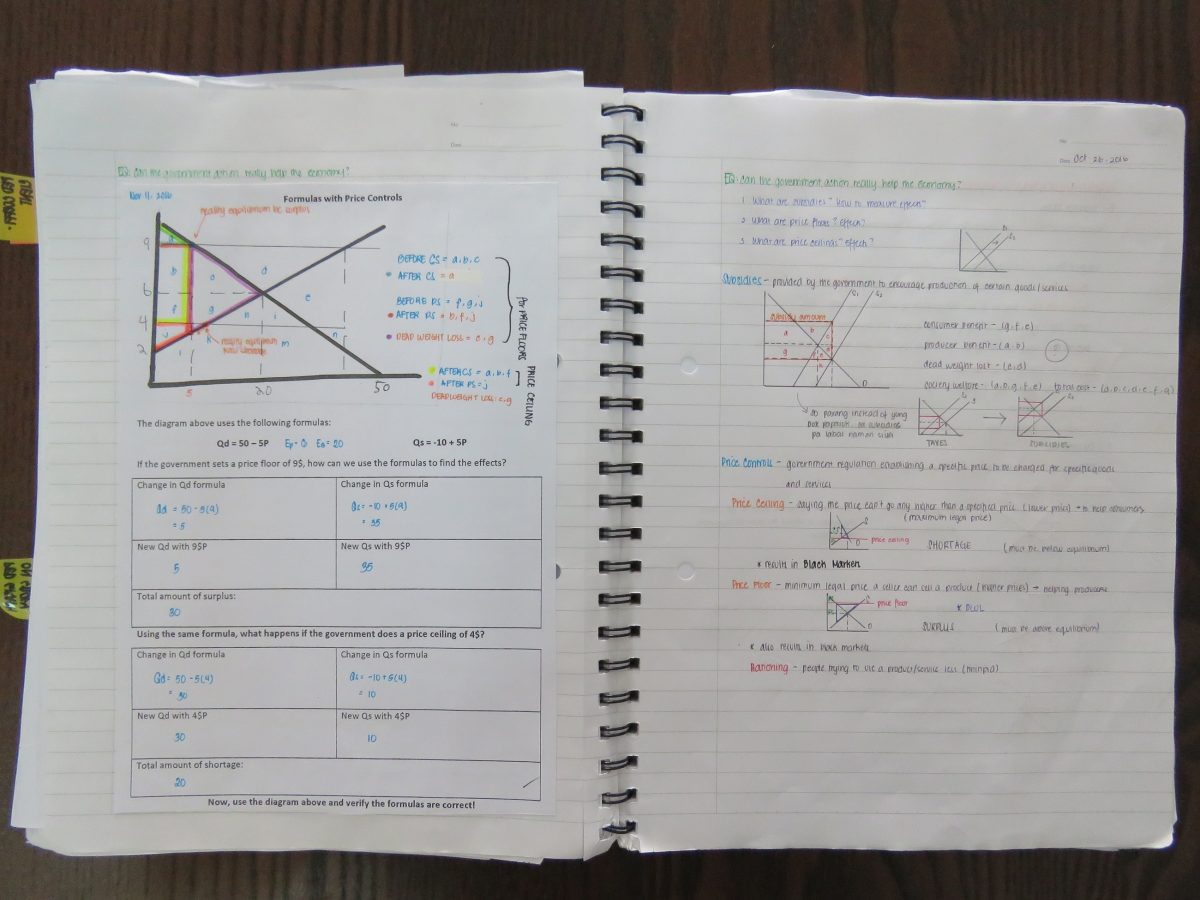 No.
Date
EQ: Can the government action really help the economy?
Nov 11, 2016
Formulas with Price Controls
reality equilibrium bc surplus
9
6
4
2
a
b
c
d
e
f
g
h
i
j
k
m
n
5
20
50
BEFORE CS = a, b, c
AFTER CS = a
BEFORE PS = f, g, j
AFTER PS = b, f, j
DEAD WEIGHT LOSS = c, g
for PRICE FLOORS
AFTER CS = a, b, f
AFTER PS = j
DEADWEIGHT LOSS: c, g
PRICE CEILING
The diagram above uses the following formulas:
Qd = 50 – 5P
Qs = -10 + 5P
If the government sets a price floor of 9$, how can we use the formulas to find the effects?
Change in Qd formula
Change in Qs formula
Qd = 50 - 5(9)
= 5
Qs = -10 + 5(9)
= 35
New Qd with 9$P
New Qs with 9$P
5
35
Total amount of surplus:
30
Using the same formula, what happens if the government does a price ceiling of 4$?
Change in Qd formula
Change in Qs formula
Qd = 50 - 5(4)
= 30
Qs = -10 + 5(4)
= 10
New Qd with 4$P
New Qs with 4$P
30
10
Total amount of shortage:
20
Now, use the diagram above and verify the formulas are correct!
No.
Date Oct 26, 2016
EQ: Can the government action really help the economy?
1. What are subsidies? How to measure effects?
2. What are price floors? Effect?
3. What are price ceilings? Effect?
Subsidies - provided by the government to encourage production of certain goods/services
subsidy amount
consumer benefit - (g, f, e)
producer benefit - (a, b)
dead weight lost - (c, d)
society welfare - (a, b, g, f, e) total cost - (a, b, c, d, e, f, g)
TAXES
SUBSIDIES
Price Controls - government regulation establishing a specific price to be charged for specific goods
and services
Price Ceiling - saying the price can't go any higher than a specified price (lower price) → to help consumers
(maximum legal price)
price ceiling
SHORTAGE
(must be below equilibrium)
* results in Black Market
Price Floor - minimum legal price a seller can sell a product (higher prices) → helping producers
price floor
SURPLUS
(must be above equilibrium)
* also results in black market
Rationing - people trying to use a product/service less